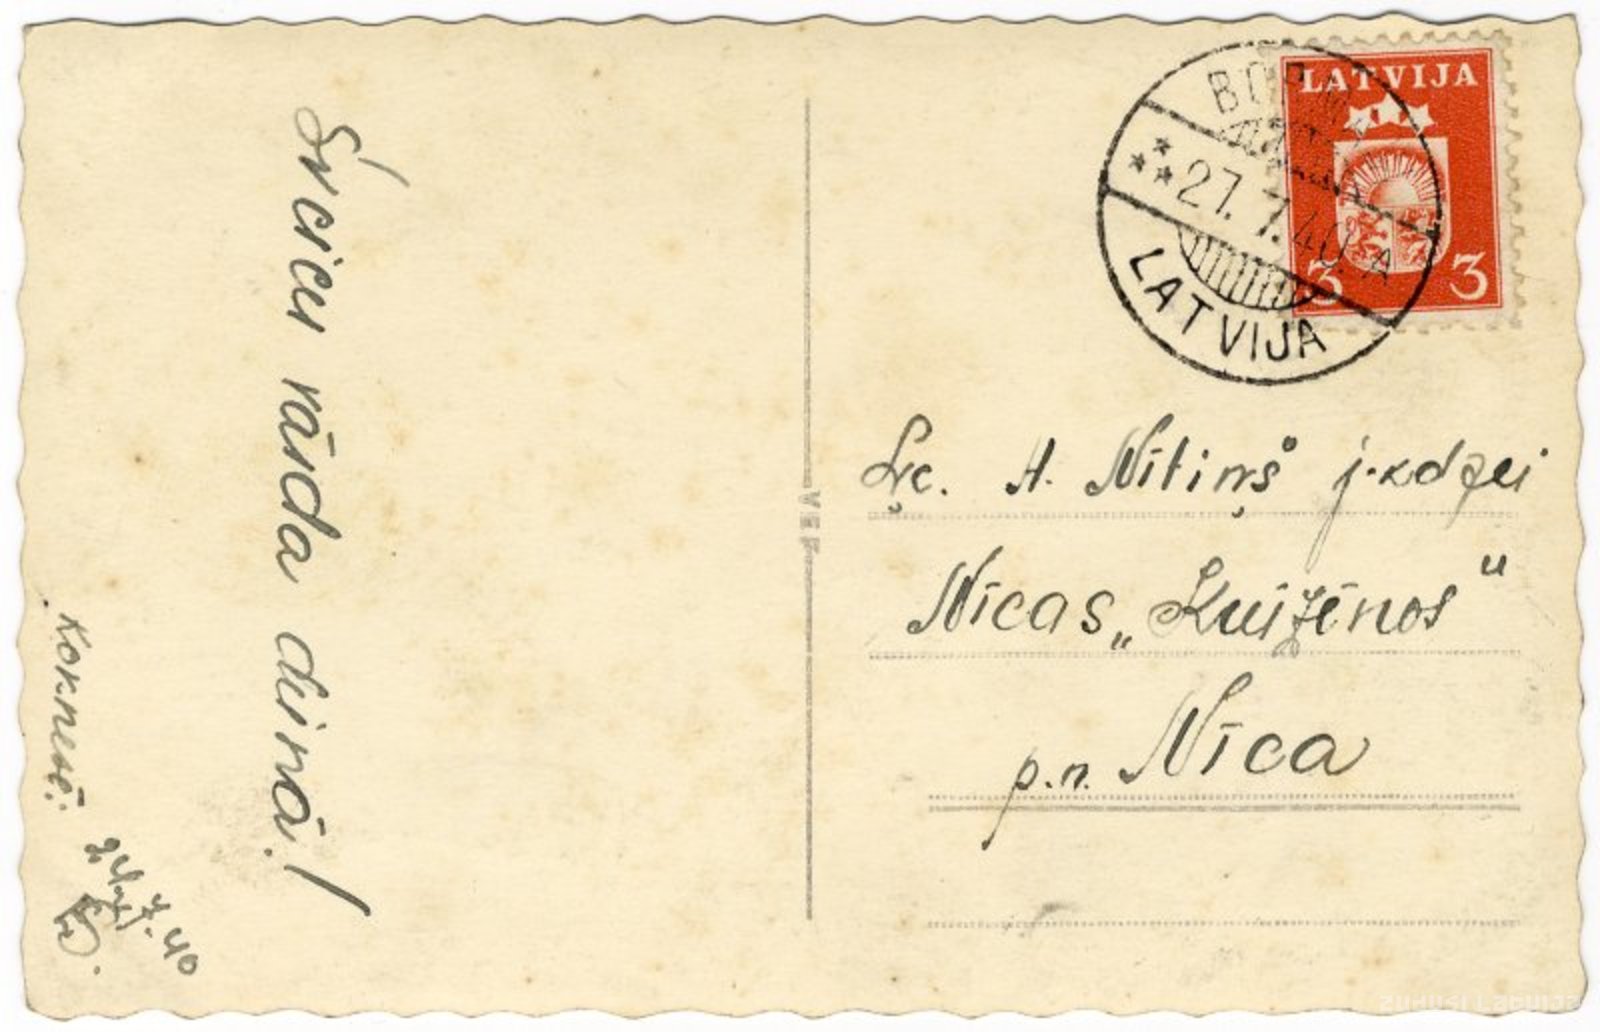 Sveicu vārda dienā!
Koknesē:
24/7. 40
LATVIJA
3 3
27.7.40. A
LATVIJA
VEF
A. Nītiņš j-kdzei
Nīcas „Kuižēnos"
p.n. Nīca
zudusi Latvija